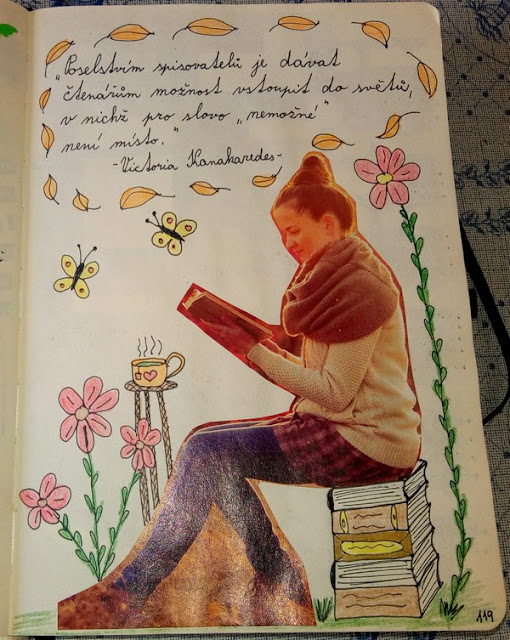 „Poselstvím spisovatelů je dávat
čtenářům možnost vstoupit do světů,
v nichž pro slovo „nemožné“
není místo.“
-Victoria Hanakaredes-
119